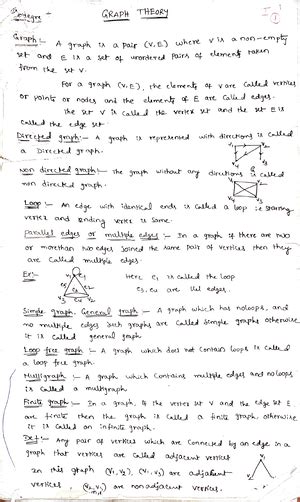 GRAPH THEORY
Graph :- A graph is a pair (V, E) where V is a non-empty
set and E is a set of unordered pairs of element taken
from the set V.
For a graph (V, E), the elements of V are called vertices
or points or nodes and the elements of E are called edges.
The set V is called the vertex set and the set E is
called the edge set
Directed graph :- A graph is represented with directions is called
a Directed graph.
Non directed graph :- The graph without any directions is called
non directed graph.
Loop :- An edge with identical ends is called a loop i.e starting
vertex and ending vertex is same.
Parallel edges or multiple edges :- In a graph if there are two
or more than two edges joined the same pair of vertices then they
are called multiple edges.
Ex:- Here, e1 is called the loop
e3, e4 are edges.
Simple graph, General graph :- A graph which has no loops, and
no multiple edges such graphs are called simple graphs otherwise
it is called general graph
Loop free graph :- A graph which does not contain loops is called
a loop free graph.
Multigraph :- A graph which contains multiple edges and no loops
is called a multigraph.
Finite graph :- In a graph, if the vertex set V and the edge set E
are finite then the graph is called a finite graph, otherwise
it is called an infinite graph.
Any pair of vertices which are connected by an edge in a
graph that vertices are called adjacent vertices
In this graph (V1, V2), (V1, V3) are adjacent
vertices, (V2, V3) are non adjacent vertices.